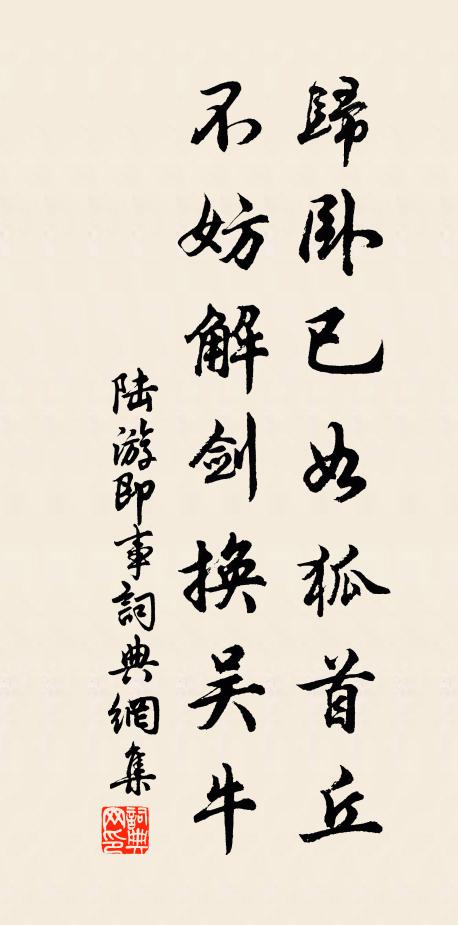 歸臥已如狐首丘
不妨解劍換吴牛
陆游即事詞典網集
詞典网印